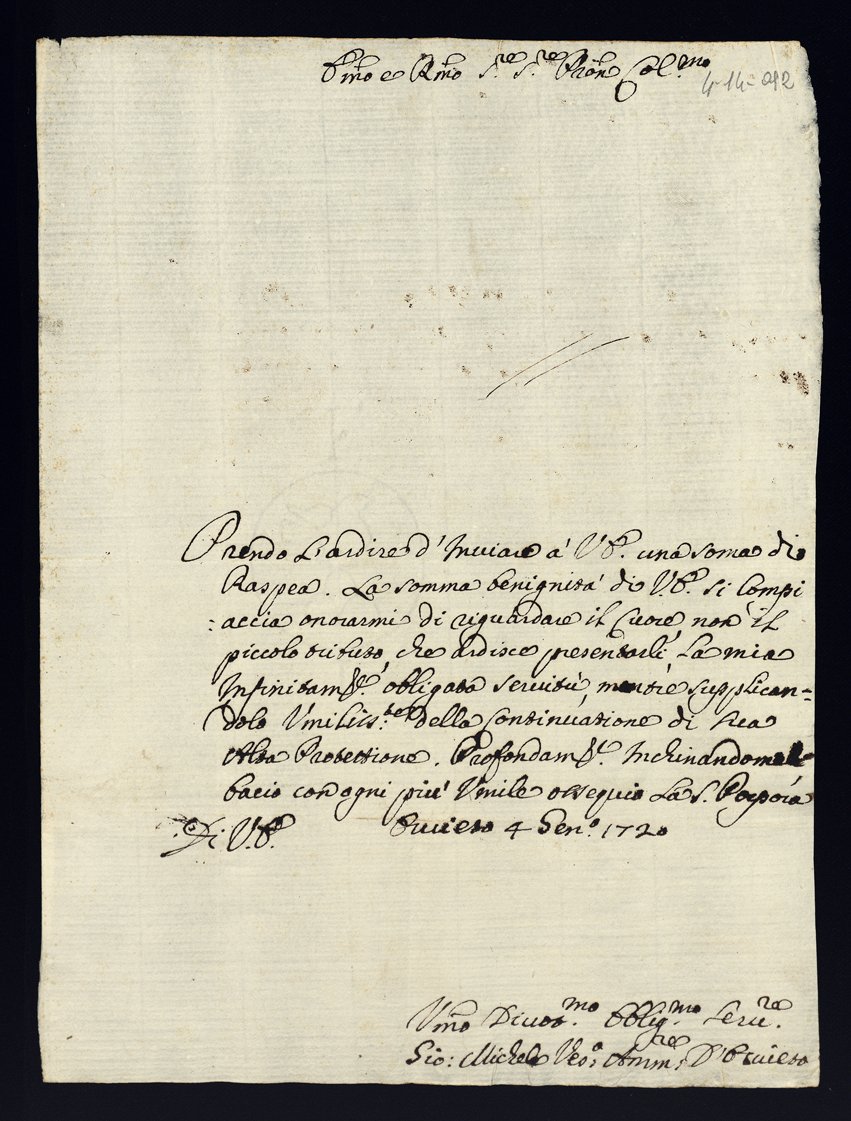 Emo e Rmo S.re S.re Pron Col.mo
4-14-012
Prendo L'ardire d'Inuiare a' V.E. una soma di
Raspea. La somma benignita' di V.E. si Compi
:accia onorarmi di riguardare il Cuore non il
piccolo tributo, che ardisce presentarli La mia
Infinitam.te obligata seruitù, mentre supplican-
dolo Vmiliss:te della Continuatione di sua
Alta Protettione. Profondam.te Inchinandomele
bacio con ogni piu' Vmile ossequio La S. Porpora
Di V.E. Oruieto 4 Gen.o 1720
Vmo Diuot.mo Oblig.mo Seru.re
Gio: Michele Ves.o Amm.re D'Oruieto